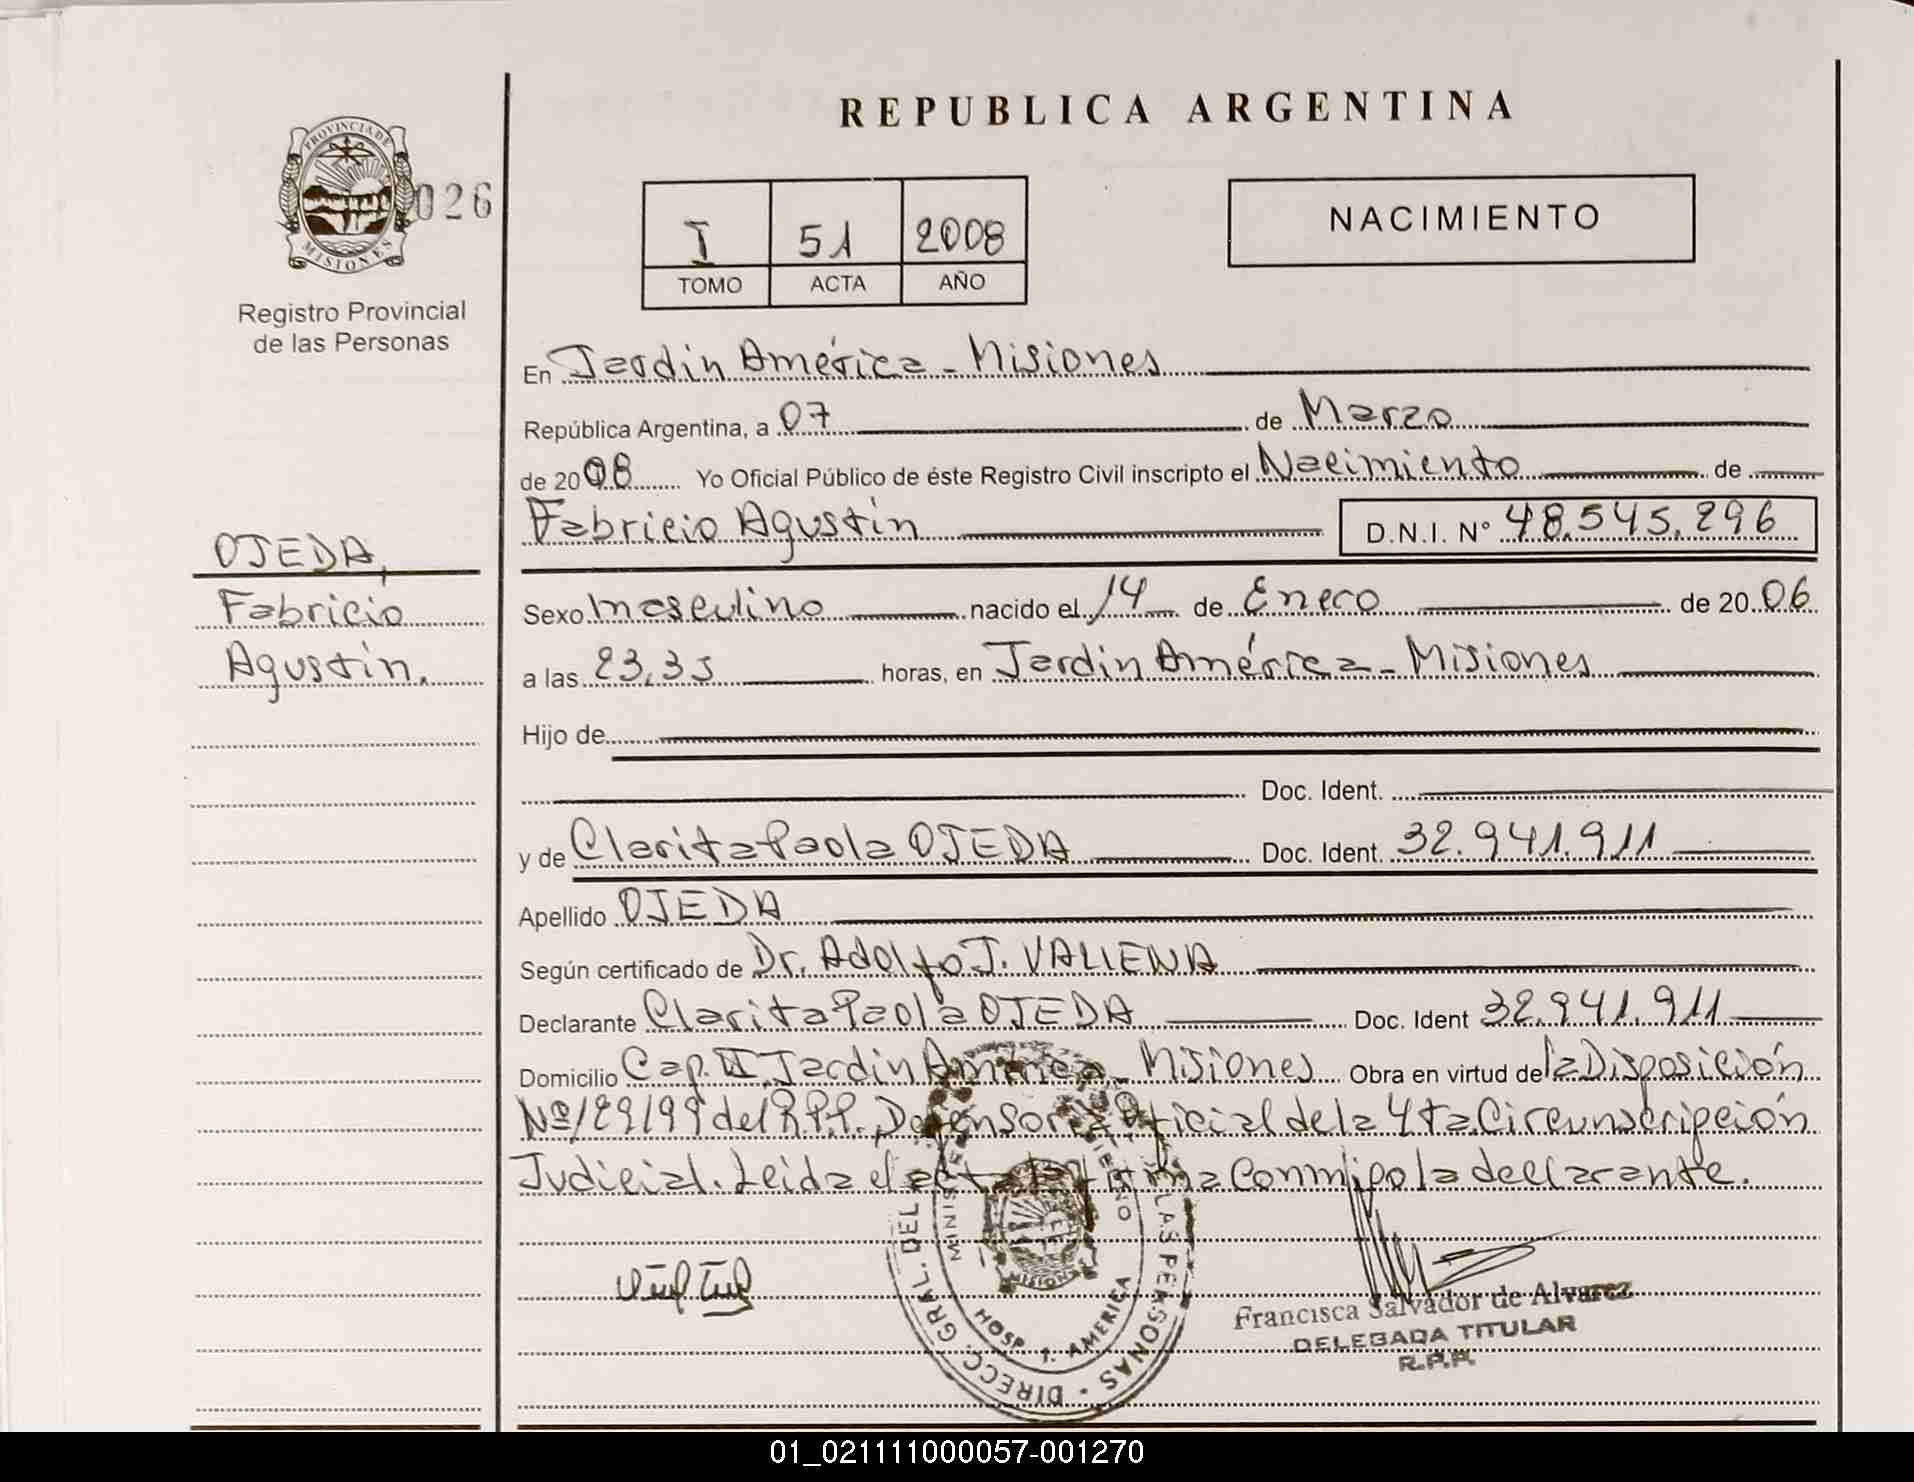 REPUBLICA ARGENTINA
PROVINCIA DE
MISIONES
026
Registro Provincial
de las Personas
I 51 2008
TOMO ACTA AÑO
NACIMIENTO
En Jardin América - Misiones
República Argentina, a 07 de Marzo
de 2008 Yo Oficial Público de éste Registro Civil inscripto el Nacimiento de
Fabricio Agustin D.N.I. N° 48.545.296
OJEDA,
Fabricio
Agustin.
Sexo masculino nacido el 14 de Enero de 2006
a las 23,35 horas, en Jardin América - Misiones
Hijo de
Doc. Ident.
y de Clarita Paola OJEDA Doc. Ident. 32.941.911
Apellido OJEDA
Según certificado de Dr. Adolfo J.
Declarante Clarita Paola OJEDA Doc. Ident 32.941.911
Domicilio Cap. Jardin América - Misiones Obra en virtud de la Disposición
Nº 129/99 del R.P.P. Defensoria Oficial de la 4ta Circunscripción
Judicial. Leida el acta la firma conmigo la declarante.
DIRECC. GRAL. DEL LAS PERSONAS
HOSP J. AMERICA
MISIONES
Francisca Salvador de Alvarez
DELEGADA TITULAR
R.P.P.
01_021111000057-001270